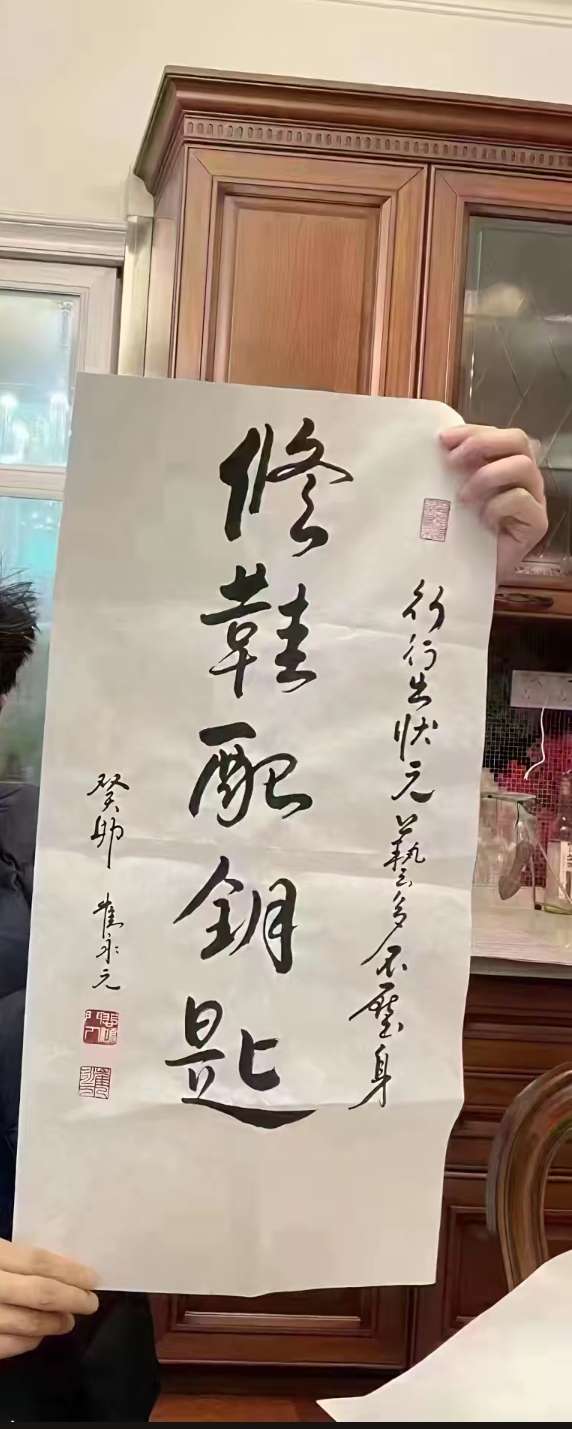 行行出状元藝多不壓身
修鞋配鈅匙
癸卯 崔永元